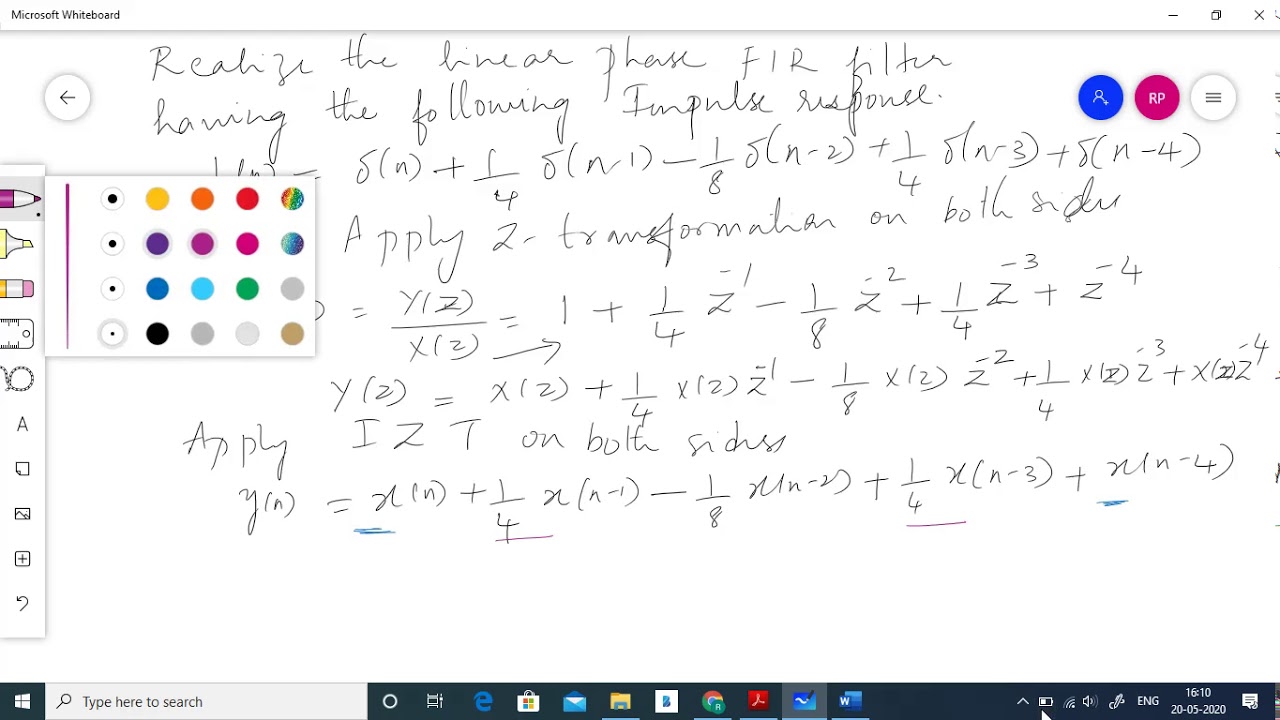 Microsoft Whiteboard
Realize the linear phase FIR filter
having the following Impulse response.
RP
= δ(n) + 1/4 δ(n-1) - 1/8 δ(n-2) + 1/4 δ(n-3) + δ(n-4)
Apply Z-transformation on both sides
= Y(Z)/X(Z) = 1 + 1/4 Z^-1 - 1/8 Z^-2 + 1/4 Z^-3 + Z^-4
Y(Z) = X(Z) + 1/4 X(Z) Z^-1 - 1/8 X(Z) Z^-2 + 1/4 X(Z) Z^-3 + X(Z) Z^-4
Apply IZT on both sides
y(n) = x(n) + 1/4 x(n-1) - 1/8 x(n-2) + 1/4 x(n-3) + x(n-4)
Type here to search
ENG
16:10
20-05-2020